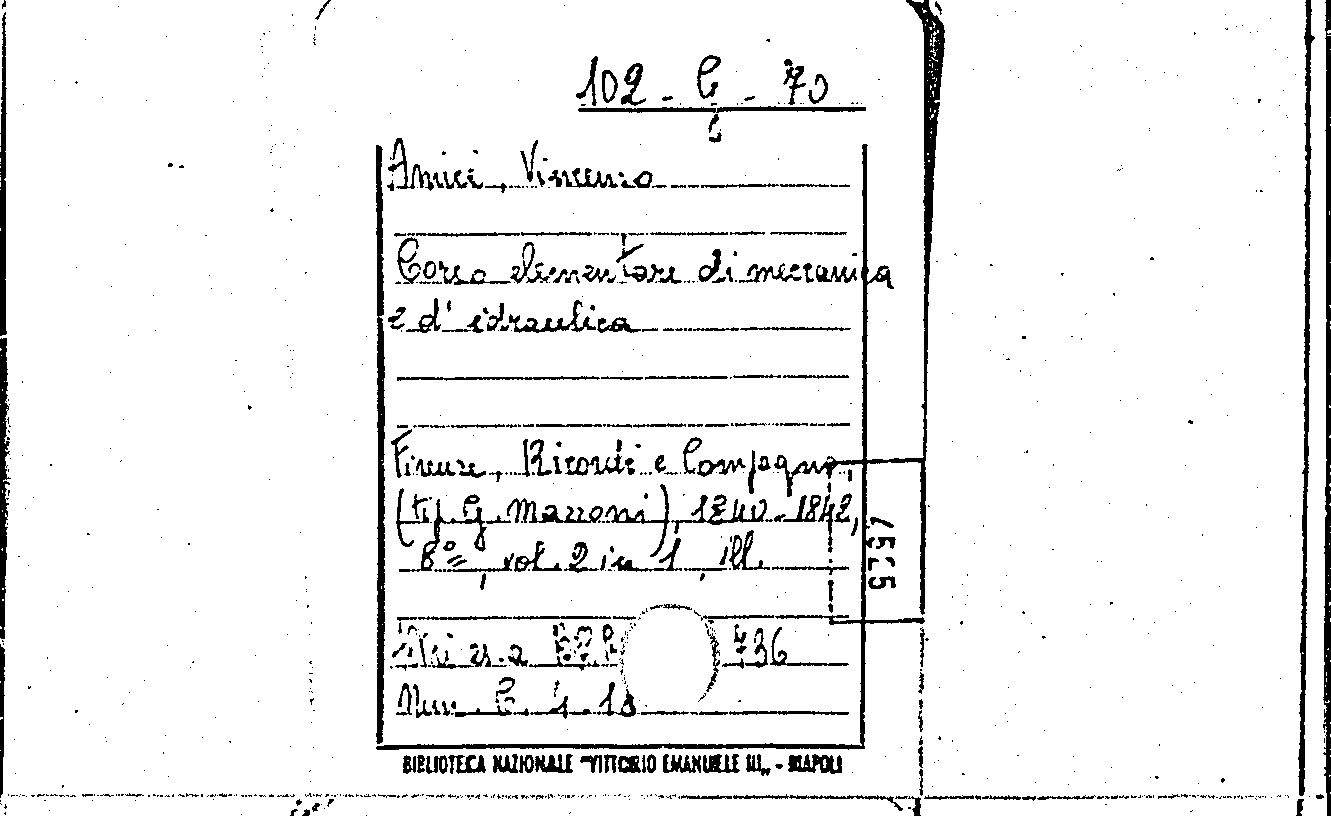 102 - G - 70
6
Amici, Vincenzo
Corso elementare di meccanica
e d'idraulica
Firenze, Ricordi e Compagno,
(tip. G. Mazzoni), 1840-1842,
8°, vol. 2 in 1, ill.
Altri es. a 736
Mun. C. 4. 18
BIBLIOTECA NAZIONALE "VITTORIO EMANUELE III„ - NAPOLI